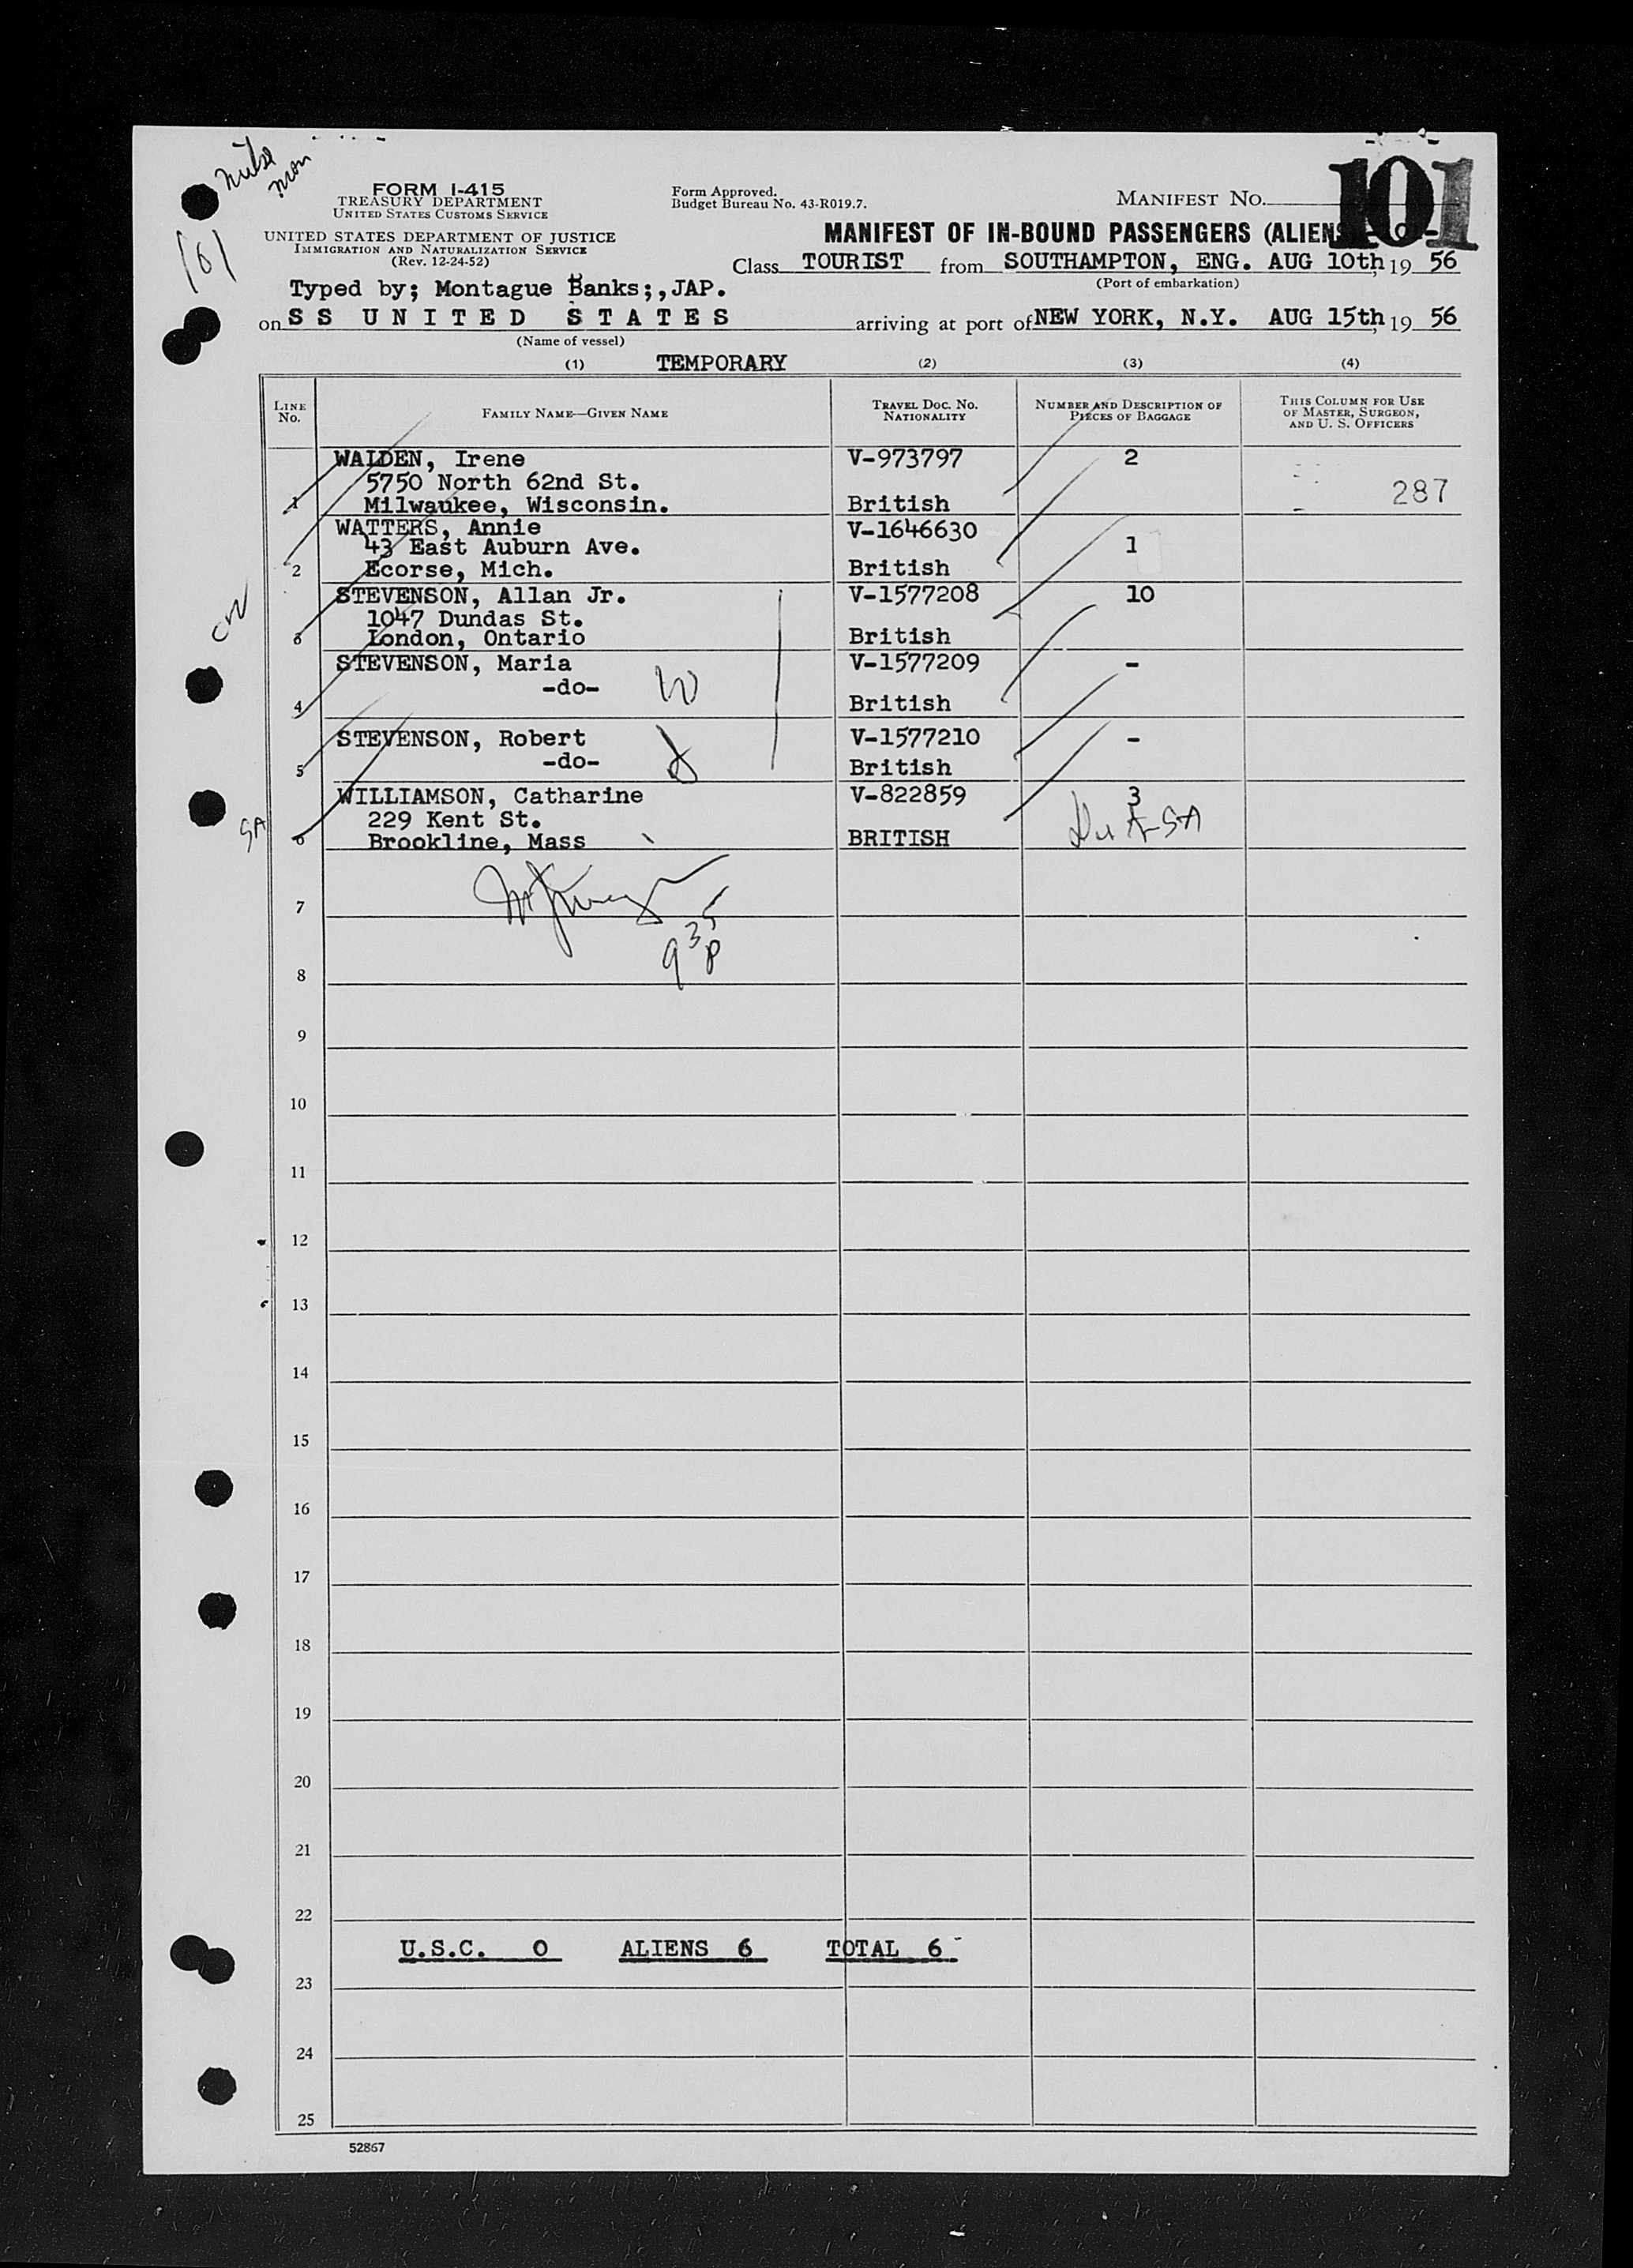 101
101
FORM I-415
TREASURY DEPARTMENT
UNITED STATES CUSTOMS SERVICE
UNITED STATES DEPARTMENT OF JUSTICE
IMMIGRATION AND NATURALIZATION SERVICE
(Rev. 12-24-52)
Form Approved.
Budget Bureau No. 43-R019.7.
MANIFEST NO.
MANIFEST OF IN-BOUND PASSENGERS (ALIENS
Class TOURIST from SOUTHAMPTON, ENG. AUG 10th, 19 56
(Port of embarkation)
Typed by; Montague Banks;,JAP.
on S S U N I T E D S T A T E S arriving at port of NEW YORK, N.Y. AUG 15th, 19 56
(Name of vessel)
(1) TEMPORARY (2) (3) (4)
LINE No. FAMILY NAME—GIVEN NAME TRAVEL DOC. NO. NATIONALITY NUMBER AND DESCRIPTION OF PIECES OF BAGGAGE THIS COLUMN FOR USE OF MASTER, SURGEON, AND U. S. OFFICERS
WALDEN, Irene V-973797 2
5750 North 62nd St. 287
1 Milwaukee, Wisconsin. British
WATTERS, Annie V-1646630
43 East Auburn Ave. 1
2 Ecorse, Mich. British
STEVENSON, Allan Jr. V-1577208 10
1047 Dundas St.
3 London, Ontario British
STEVENSON, Maria V-1577209 -
-do-
4 British
STEVENSON, Robert V-1577210 -
-do-
5 British
WILLIAMSON, Catharine V-822859 3
229 Kent St.
SA 6 Brookline, Mass BRITISH
7
935
p
8
9
10
11
12
13
14
15
16
17
18
19
20
21
22
U.S.C. 0 ALIENS 6 TOTAL 6
23
24
25
52867